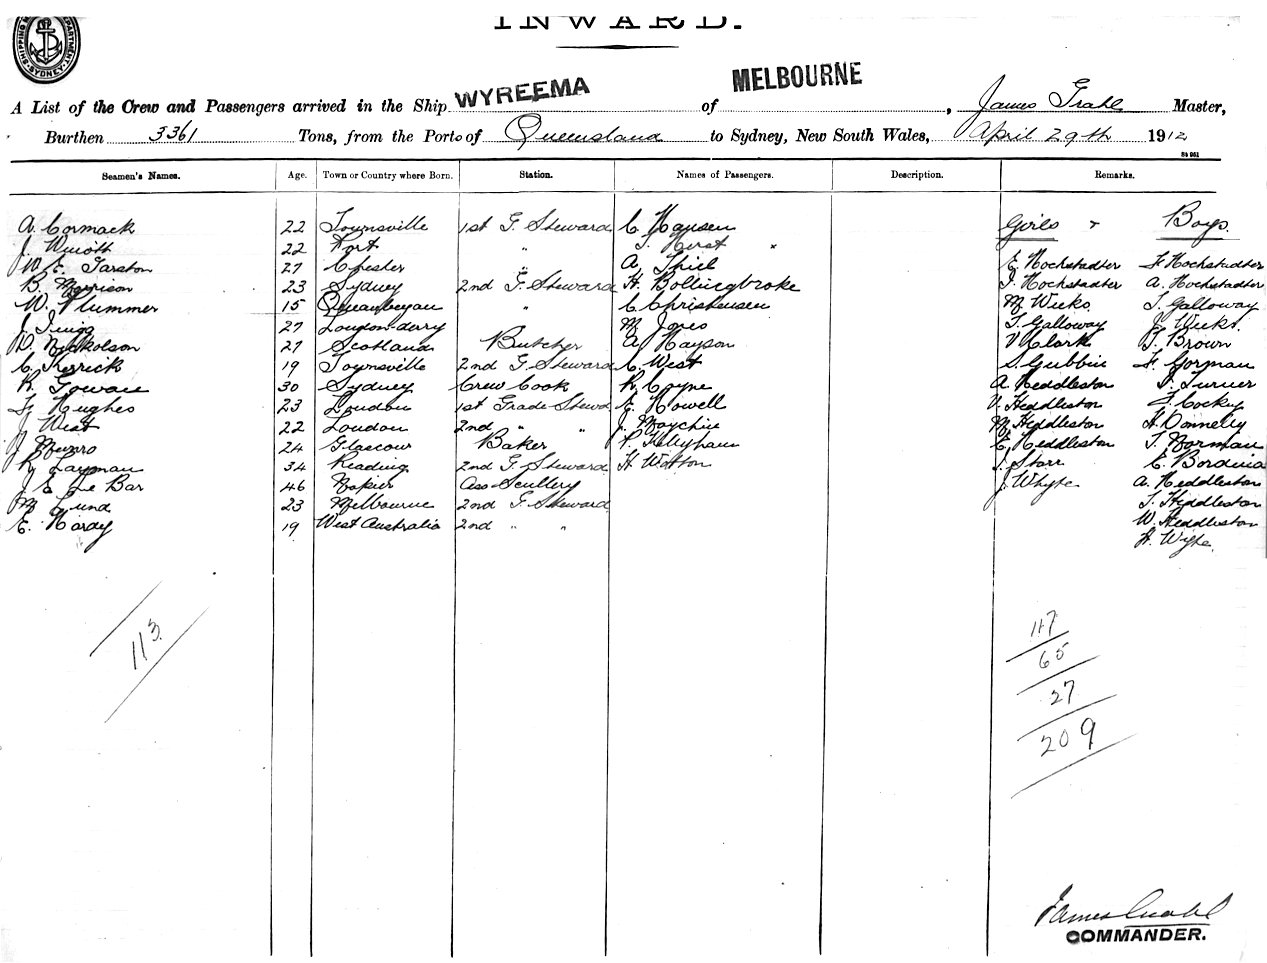 INWARD.
SHIPPING DEPARTMENT. SYDNEY.
A List of the Crew and Passengers arrived in the Ship WYREEMA of MELBOURNE, James Grahl Master,
Burthen 3361 Tons, from the Port o of Queensland to Sydney, New South Wales, April 29th 1912
Seamen's Names. Age. Town or Country where Born. Station. Names of Passengers. Description. Remarks.
A. Cormack 22 Townsville 1st G. Steward C. Hansen Girls Boys.
J. 22 " T. Hirst "
W. E. Tarston 27 Chester " A. Thiel E. Hochstadter F. Hochstadter
B. Morrison 23 Sydney 2nd G. Steward H. Bollingbroke J. Hochstadter A. Hochstadter
W. Plummer 15 Queanbeyan " C. Christensen M. Weeks T. Galloway
J. 27 London-derry M. Jones T. Galloway J. Weeks.
D. Nickolson 27 Scotland Butcher A. Hayson V. Clark T. Brown
C. Kerrick 19 Townsville 2nd G. Steward C. West S. Gubbin F. Gorman
R. Gowan 30 Sydney Crew Cook R. Coyne A. Heddleston T. Turner
F. Hughes 23 London 1st Grade Stewd E. Howell V. Heddleston Cockey
J. West 22 London 2nd " " J. M. Heddleston H. Donnelly
J. Munro 24 Glascow Baker P. E. Heddleston T. Norman
R. Layman 34 Reading 2nd G. Steward H. Wotton J. Storr E. Bordina
J. E. Le Bar 46 Napier Ass Scullery J. Whyte A. Heddleston
M. Lund 23 Melbourne 2nd G Steward T. Heddleston
E. Hardy 19 West Australia 2nd " " W. Heddleston
H. Wyte.
113
117
65
27
209
James Grahl
COMMANDER.